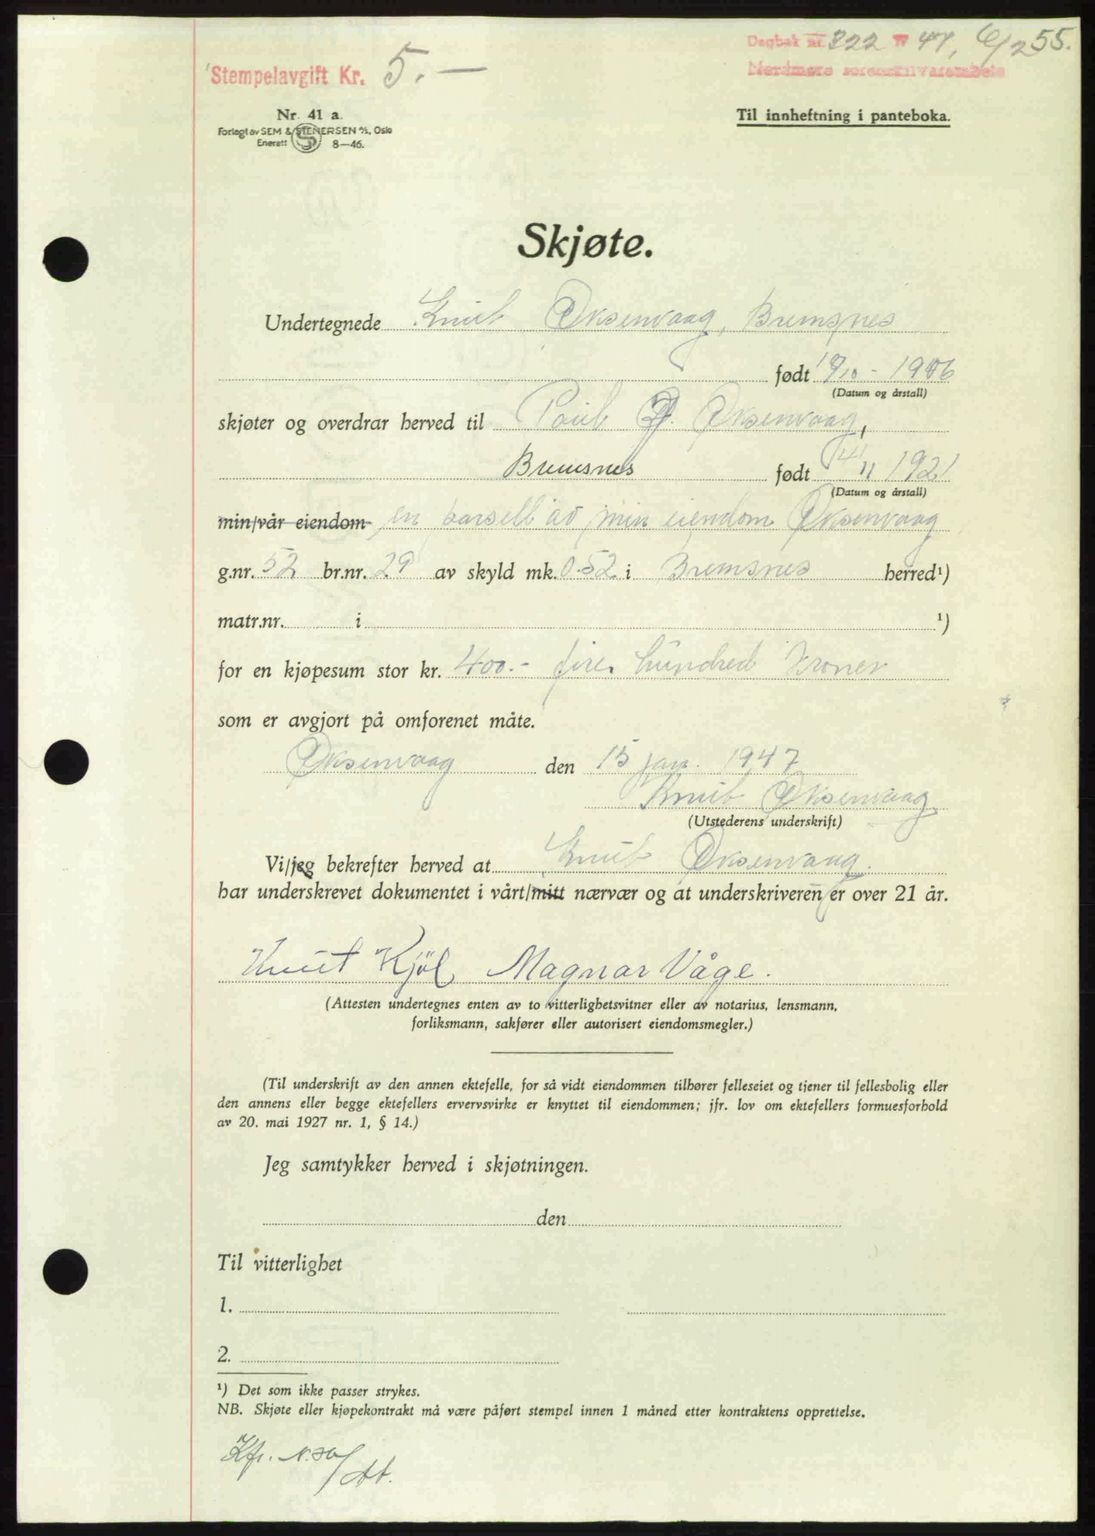 Stempelavgift Kr. 5.-
Dagbok nr. 322 47, 6/2 55.
Nordmøre sorenskriverembete
Nr. 41 a.
Forlagt av SEM & STENERSEN A/S, Oslo
Enerett S 8—46.
Til innheftning i panteboka.
Skjøte.
Undertegnede Knut Øksenvaag, Bremsnes
født
(Datum og årstall)
skjøter og overdrar herved til Paul Øksenvaag,
Bremsnes født 14/11 1921
(Datum og årstall)
min/vår eiendom en parsell av min eiendom Øksenvaag
g.nr. 52 br.nr. 29 av skyld mk. 0.52 i Bremsnes herred¹)
matr.nr. i ¹)
for en kjøpesum stor kr. 400.- fire hundred Kroner
som er avgjort på omforenet måte.
Øksenvaag den 15 jan. 1947
Knut Øksenvaag
(Utstederens underskrift)
Vi/jeg bekrefter herved at Knut Øksenvaag.
har underskrevet dokumentet i vårt/mitt nærvær og at underskriveren er over 21 år.
Knut Kjöl Magnar Våge.
(Attesten undertegnes enten av to vitterlighetsvitner eller av notarius, lensmann,
forliksmann, sakfører eller autorisert eiendomsmegler.)
(Til underskrift av den annen ektefelle, for så vidt eiendommen tilhører felleseiet og tjener til fellesbolig eller
den annens eller begge ektefellers ervervsvirke er knyttet til eiendommen; jfr. lov om ektefellers formuesforhold
av 20. mai 1927 nr. 1, § 14.)
Jeg samtykker herved i skjøtningen.
den
Til vitterlighet
1.
2.
¹) Det som ikke passer strykes.
NB. Skjøte eller kjøpekontrakt må være påført stempel innen 1 måned etter kontraktens opprettelse.